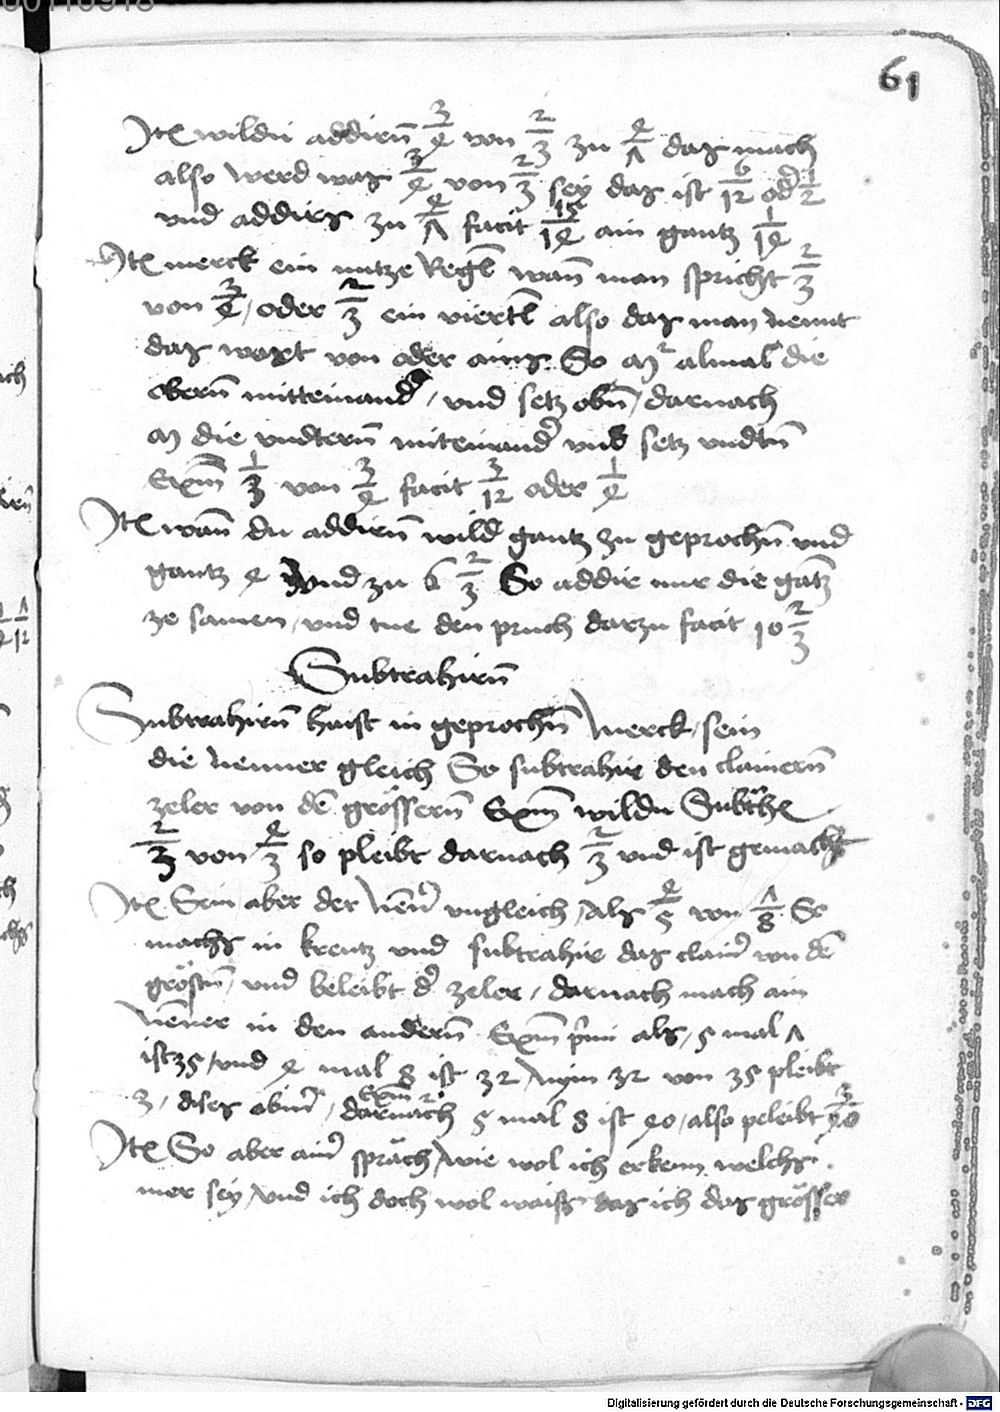 00110918
61
Itẽ wildu addirñ 3/4 von 2/3 zu 4/7 daz mach
also werd waz 3/4 von 2/3 sey daz ist 6/12 od 1/2
vnd addirs zu 4/7 facit 15/14 ain gantz 1/14
Itẽ merck ein nutze Regl wañ man spricht 2/3
von 3/4 / oder 2/3 ein viertl also daz man nennt
daz wort von oder ains So m almal die
oberñ mitteinand / vnd setz obñ / darnach
m die vndterñ miteinand vnd setz vndtñ
Exm̃ 1/3 von 3/4 facit 3/12 oder 1/4
Itẽ wañ du addirñ wild gantz zu geprochñ vnd
gantz 4 vnd zu 6 2/3 So addir nur die gãtz
ze samen / vnd tue den pruch darzu facit 10 2/3
Subtrahirñ
Subtrahirñ haist in geprochñ Merck / sein
die Nenner gleich So subtrahir den clainerñ
zeler von dẽ grösserñ Exm̃ wildu Subthẽ
2/3 von 4/3 so pleibt darnach 2/3 vnd ist gemacht
Itẽ Sein aber der Neñ vngleich / Als 4/5 von 7/8 So
machs in kreutz vnd subtrahir daz clain von dẽ
gröstñ / vnd beleibt d zeler / darnach mach ain
Nẽner in den anderñ Exm̃ pmi als / 5 mal 7
ist 35 / vnd 4 mal 8 ist 32 / Nym 32 von 35 pleibt
3 / dises obñ / darnach 5 mal 8 ist 40 / also peleibt 3/40
Exm̃ 2
Itẽ So aber ain spräch / wie wol ich erkenn welchs
mer sey / vnd ich doch wol waiss daz ich daz grösser
Digitalisierung gefördert durch die Deutsche Forschungsgemeinschaft - DFG